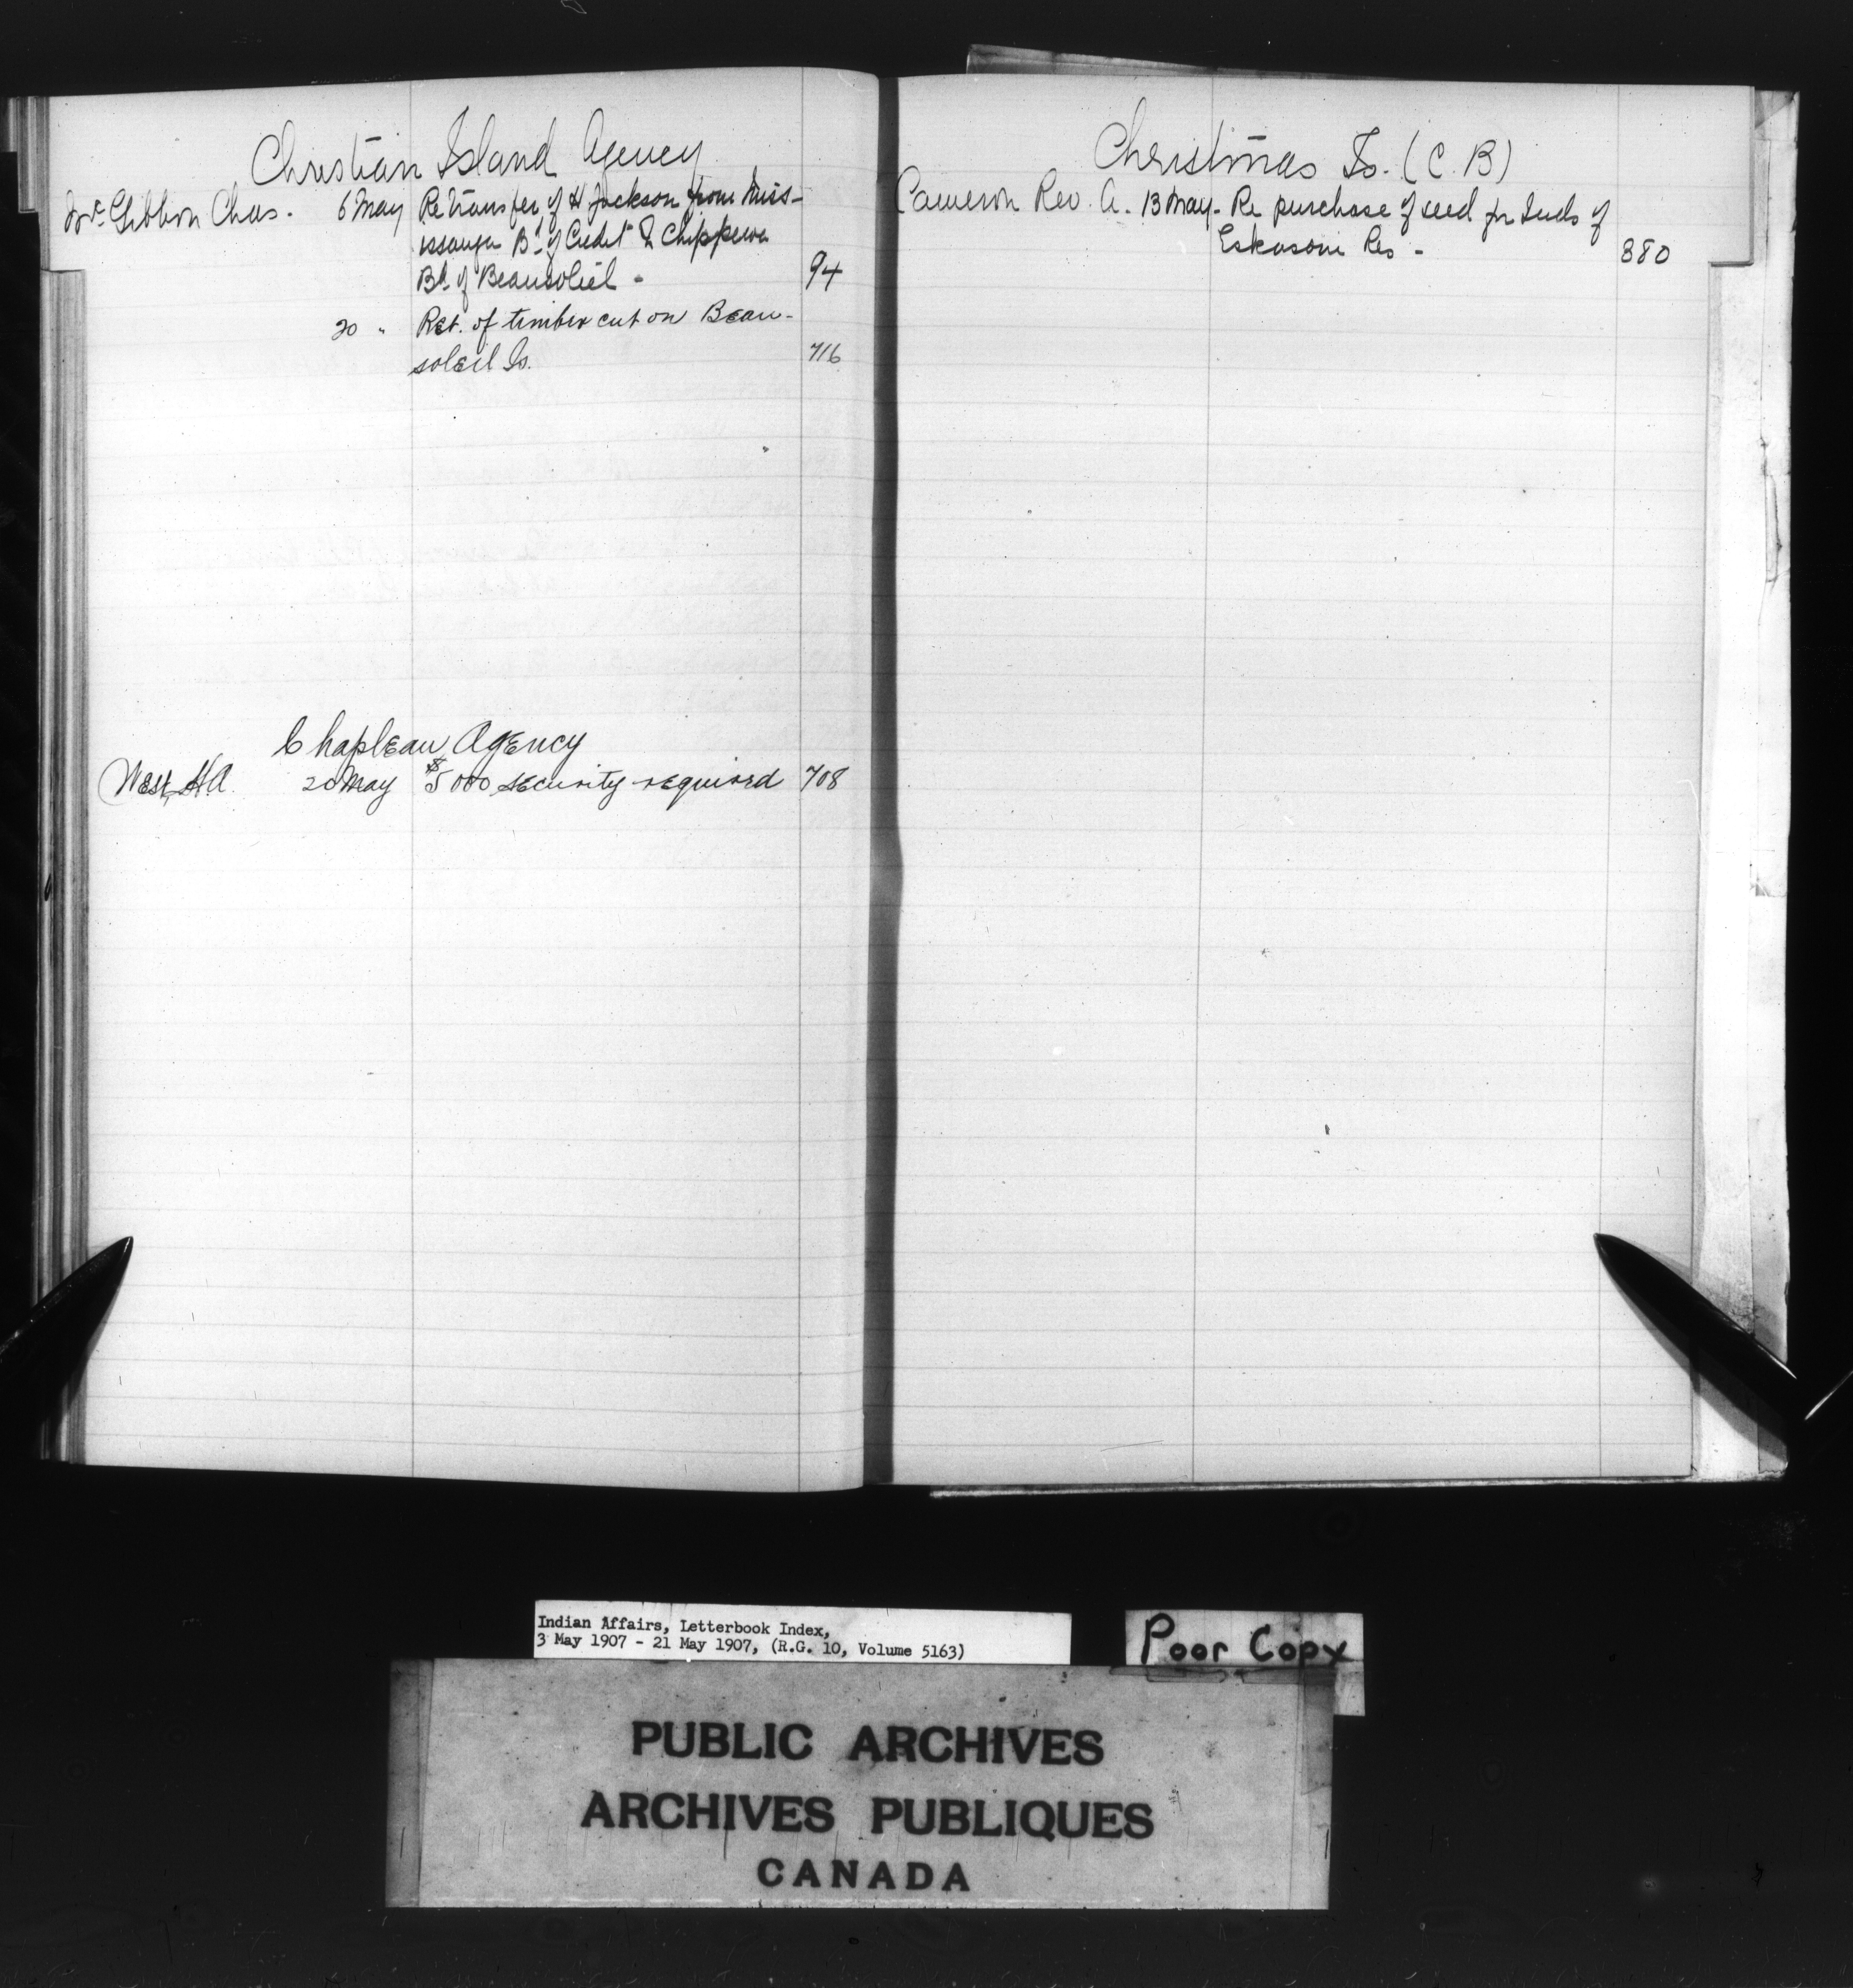 Christian Island Agency
McGibbon Chas. 6 May Re transfer of H Jackson from Miss-
issauga Bd of Credit to Chippewa
Bd. of Beausoliel - 94
20 " Ret. of timber cut on Beau-
soleil Is. 716
Chapleau Agency
West H A. 20 May $5000 security required 708
Christmas Is. (C. B)
Cameron Rev. A. 13 May - Re purchase of seed for Inds of
Eskasoni Res - 380
Indian Affairs, Letterbook Index,
3 May 1907 - 21 May 1907, (R.G. 10, Volume 5163)
Poor Copy
PUBLIC ARCHIVES
ARCHIVES PUBLIQUES
CANADA